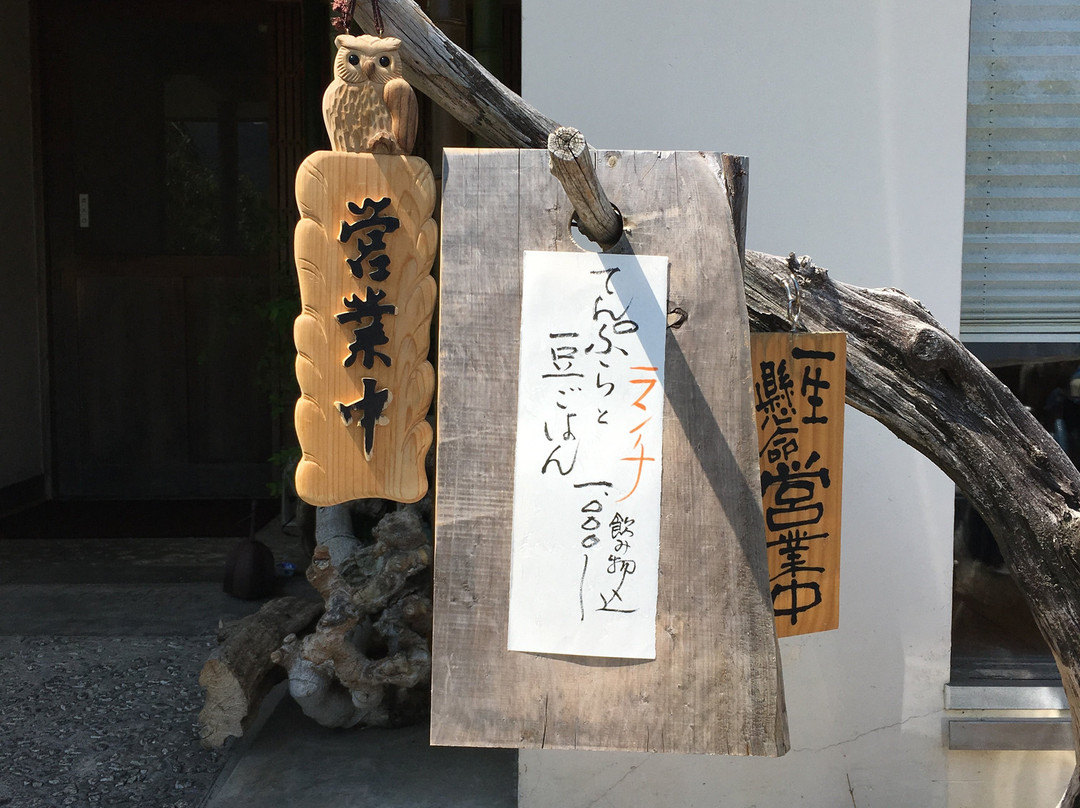 営業中
ランチ
てんぷらと
豆ごはん
一.〇〇〇ー
飲み物込
一生
懸命
営業中